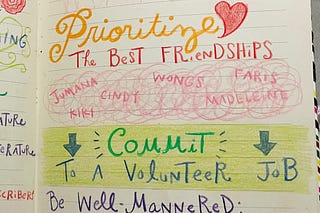 Prioritize
The Best Friendships
Jumana Wongs Faris
Cindy
Kiki Madeleine
Commit
To A Volunteer Job
Be Well-Mannered:
ING
ATURE
ERATURE
SCRIBERS